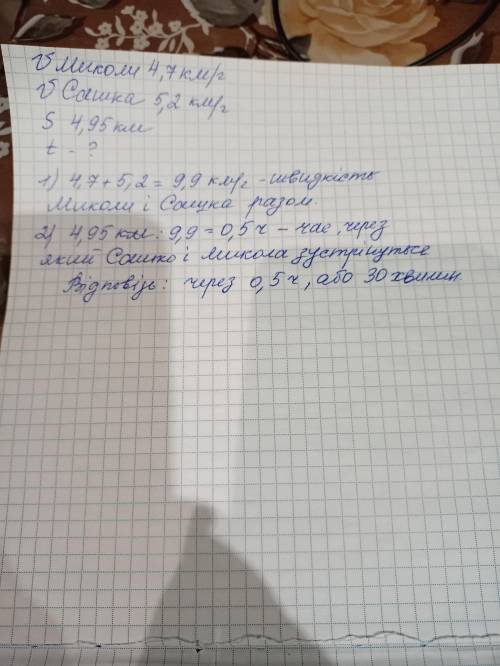 V Миколи 4,7 км/г
V Сашка 5,2 км/г
S 4,95 км
t - ?
1) 4,7+5,2= 9,9 км/г - швидкість
Миколи і Сашка разом.
2) 4,95 км : 9,9 = 0,5 ч - час, через
який Сашко і Микола зустрінуться
Відповідь: через 0,5 ч, або 30 хвилин.